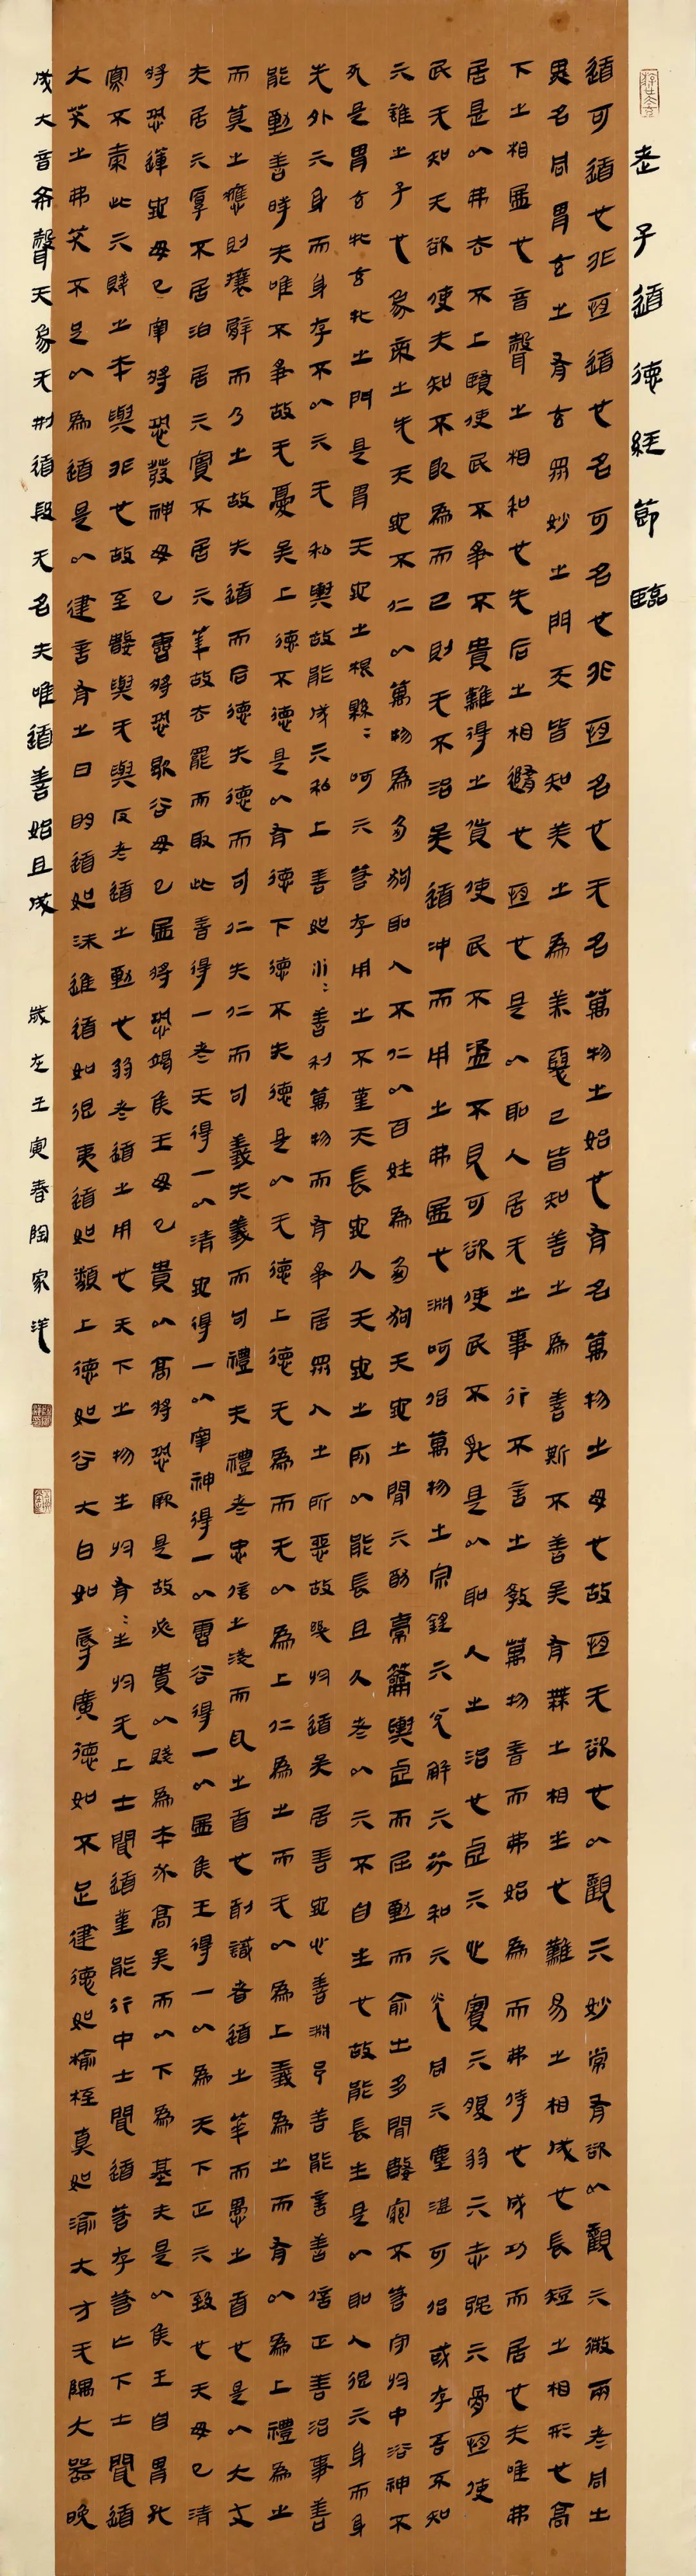 老子道德經節臨
道可道也非恒道也名可名也非恒名也无名萬物之始也有名萬物之母也故恒无欲也以觀亓妙常有欲以觀亓徼兩者同出
異名同胃玄之有玄眾妙之門天皆知美之為美惡已皆知善之為善斯不善矣有無之相生也難易之相成也長短之相形也高
下之相盈也音聲之相和也先后之相隨也恒也是以聖人居无之事行不言之教萬物昔而弗始為而弗侍也成功而居也夫唯弗
居是以弗去不上賢使民不爭不貴難得之貨使民不盜不見可欲使民不亂是以聖人之治也虛亓心實亓腹弱亓志強亓骨恒使
民无知无欲使夫知不敢為而已則无不治矣道沖而用之弗盈也淵呵佁萬物之宗銼亓兌解亓芬和亓光同亓塵湛呵佁或存吾不知
亓誰之子也象帝之先天地不仁以萬物為芻狗聖人不仁以百姓為芻狗天地之閒亓猷橐籥輿虛而屈動而俞出多聞數窮不若守於中浴神不
死是胃玄牝玄牝之門是胃天地之根緜=呵亓若存用之不堇天長地久天地之所以能長且久者以亓不自生也故能長生是以聖人退亓身而身
先外亓身而身存不以亓无私輿故能成亓私上善如水=善利萬物而有爭居眾人之所惡故幾於道矣居善地心善淵予善能言善信正善治事善
能動善時夫唯不爭故无憂矣上德不德是以有德下德不失德是以无德上德无為而无以為上仁為之而无以為上義為之而有以為上禮為之
而莫之應則攘臂而乃之故失道而后德失德而句仁失仁而句義失義而句禮夫禮者忠信之淺而亂之首也前識者道之華而愚之首也是以大丈
夫居亓厚不居泊居亓實不居亓華故去罷而取此昔得一者天得一以清地得一以寧神得一以靈谷得一以盈侯王得一以為天下正亓致也天毋已清
將恐蓮地毋已寧將恐發神毋已靈將恐歇谷毋已盈將恐竭侯王毋已貴以高將恐厥是故必貴以賤為本必高矣而以下為基夫是以侯王自胃孤
寡不橐此亓賤之本輿非也故至譽輿无輿反者道之動也弱者道之用也天下之物生於有=生於无上士聞道堇能行中士聞道若存若亡下士聞道
大笑之弗笑不足以為道是以建言有之曰明道如沬進道如退夷道如類上德如谷大白如辱廣德如不足建德如榆桎真如渝大方无隅大器晚
成大音希聲天象无刑道段无名夫唯道善始且成
歲在壬寅春陶家洋